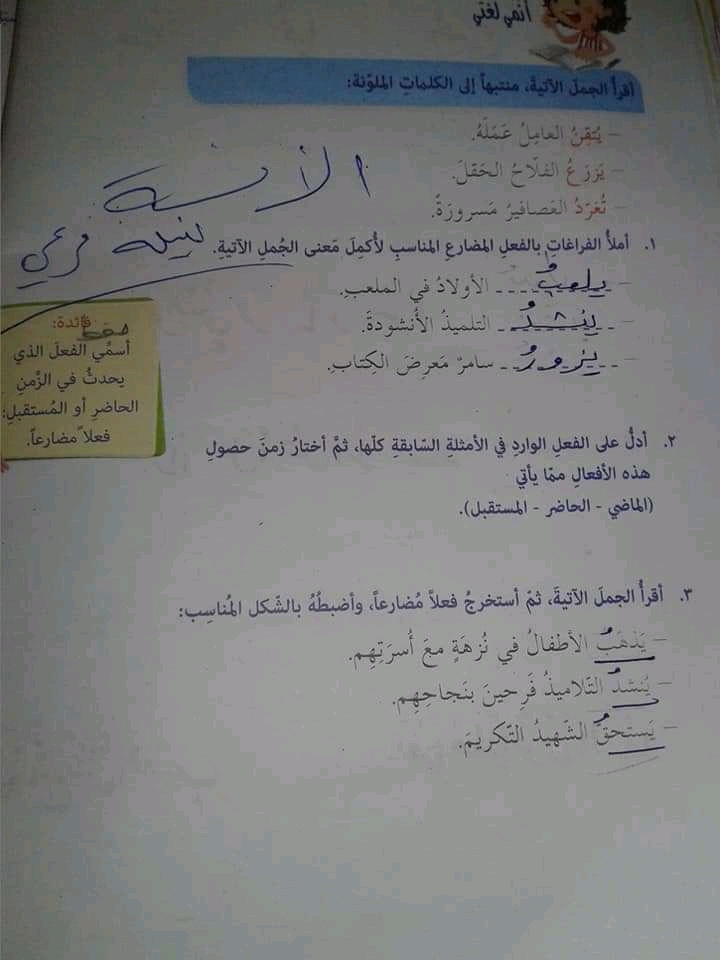 أنمي لغتي
أقرأُ الجملَ الآتيةَ، منتبهاً إلى الكلماتِ الملوّنة:
– يُتقِنُ العامِلُ عَمَلَهُ.
– يَزرَعُ الفلّاحُ الحَقلَ.
– تُغرّدُ العَصافيرُ مَسرورَةً.
الآنسة
مرعي
١. أملأُ الفراغاتِ بالفعلِ المضارعِ المناسبِ لأُكمِلَ مَعنى الجُملِ الآتيةِ.
– يلعبُ الأولادُ في الملعبِ.
– يُنشدُ التلميذُ الأنشودةَ.
– يزورُ سامرٌ مَعرِضَ الكِتابِ.
حفظ
فائدة:
أسمِّي الفعلَ الذي
يحدثُ في الزَّمنِ
الحاضرِ أو المُستقبلِ:
فعلاً مضارعاً.
٢. أدلُّ على الفعلِ الواردِ في الأمثلةِ السّابقةِ كلّها، ثمَّ أختارُ زمنَ حصولِ
هذه الأفعالِ ممّا يأتي
(الماضي - الحاضر - المستقبل).
٣. أقرأُ الجملَ الآتيةَ، ثمّ أستخرجُ فعلاً مُضارعاً، وأضبطُهُ بالشّكل المُناسِب:
– يَذهَبُ الأطفالُ في نُزهَةٍ معَ أُسرَتِهِم.
– يُنشدُ التّلاميذُ فَرِحينَ بنَجاحِهِم.
– يَستحقُّ الشّهيدُ التّكريمَ.